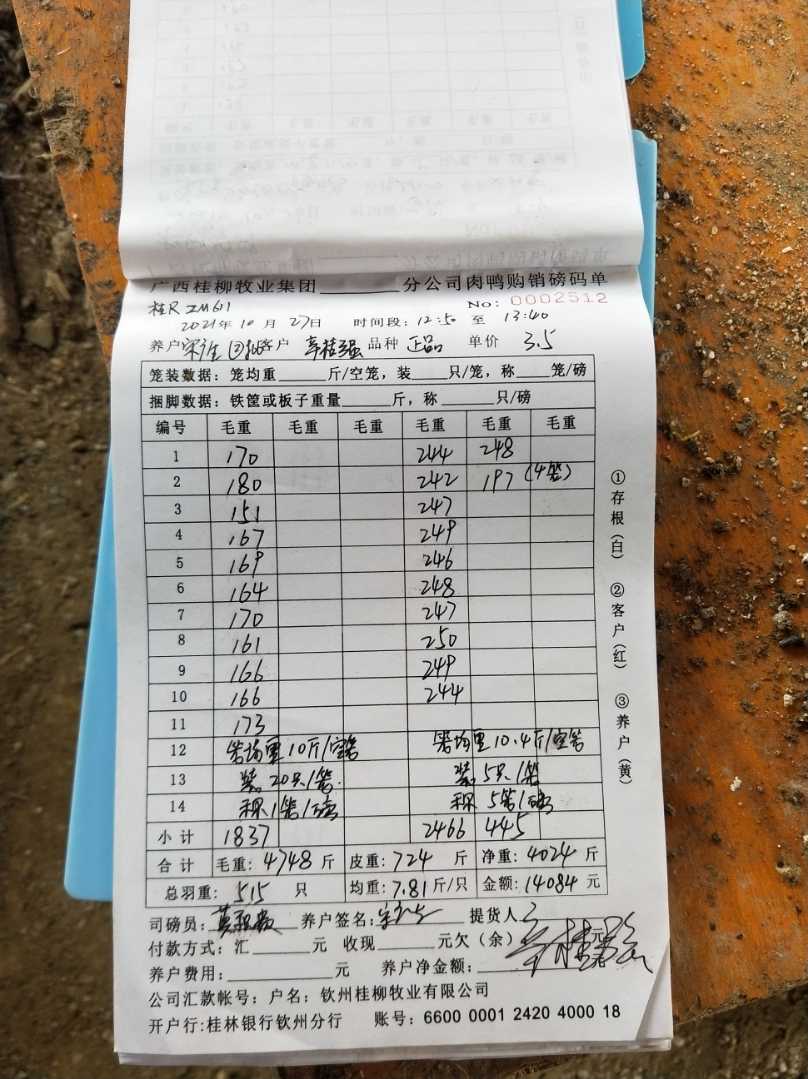 广西桂柳牧业集团______分公司肉鸭购销磅码单
桂R ZM611 No: 0002512
2021年10月27日 时间段: 12:50 至 13:40
养户 客户 品种 正品 单价 3.5
笼装数据: 笼均重______斤/空笼, 装____只/笼, 称____笼/磅
捆脚数据: 铁筐或板子重量______斤, 称______只/磅
编号 毛重 毛重 毛重 毛重 毛重 毛重
1 170 244 248
2 180 242 197 (4笼)
3 151 247
4 167 249
5 169 246
6 164 248
7 170 247
8 161 250
9 166 249
10 166 244
11 173
12 笼均重10斤/空笼 笼均重10.4斤/空笼
13 装20只/笼. 装5只/笼
14 称1笼/磅 称5笼/磅
小计 1837 2466 445
合计 毛重: 4748 斤 皮重: 724 斤 净重: 4024 斤
总羽重: 515 只 均重: 7.81 斤/只 金额: 14084 元
司磅员: 养户签名: 提货人
付款方式: 汇____元 收现______元欠(余) 元
养户费用: ______元 养户净金额:
公司汇款帐号: 户名: 钦州桂柳牧业有限公司
开户行:桂林银行钦州分行 账号: 6600 0001 2420 4000 18
①存根(白) ②客户(红) ③养户(黄)